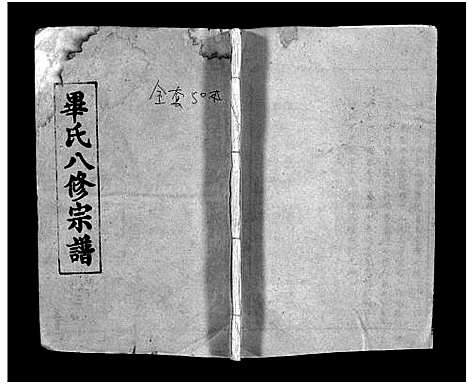 畢氏八修宗譜
全套50本